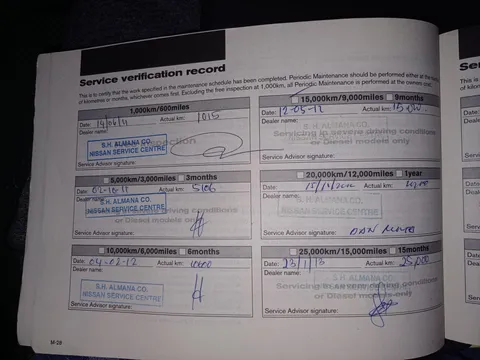 Service verification record
This is to certify that the work specified in the maintenance schedule has been completed. Periodic Maintenance should be performed either at the
of kilometres or months, whichever comes first. Excluding the free inspection at 1,000km, all Periodic Maintenance is performed at the owners cost.
1,000km/600miles
Date: Actual km: 1015
Dealer name:
S.H. ALMANA CO.
NISSAN SERVICE CENTRE
Service Advisor signature:
5,000km/3,000miles 3months
Date: 02-10-11 Actual km: 5106
Dealer name:
S.H. ALMANA CO.
NISSAN SERVICE CENTRE
driving conditions
or Diesel models only
Service Advisor signature:
10,000km/6,000miles 6months
Date: 04-02-12 Actual km: 10000
Dealer name:
S.H. ALMANA CO.
NISSAN SERVICE CENTRE
Service Advisor signature:
15,000km/9,000miles 9months
Date: 12-05-12 Actual km:
Dealer name:
Servicing in severe driving conditions
or Diesel models only
Service Advisor signature:
20,000km/12,000miles 1year
Date: Actual km:
Dealer name:
S.H. ALMANA CO.
NISSAN SERVICE CENTRE
Service Advisor signature:
25,000km/15,000miles 15months
Date: 23/1/13 Actual km:
Dealer name:
S.H. ALMANA CO.
Servicing in severe driving conditions
or Diesel models only
Service Advisor signature:
M-28
Ser
This is
of kilom